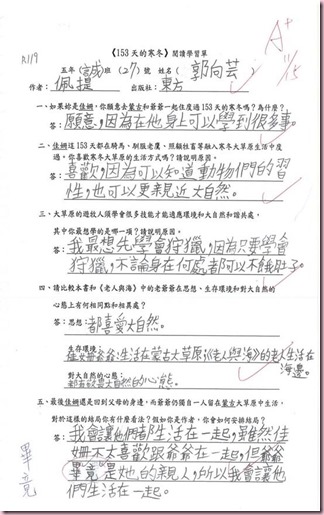 《153 天的寒冬》閱讀學習單
五年(誠)班(27)號 姓名(郭向芸)
作者:佩提 出版社:東方
A+
11/15
一、如果妳是佳姍,你願意去蒙古和爺爺一起住度過 153 天的寒冬嗎?為什麼?
答:願意,因為在他身上可以學到很多事。
二、佳姍這 153 天都在騎馬、馴服老鷹、照顧牲畜等融入寒冬大草原生活中度
過。你喜歡寒冬大草原的生活方式嗎?請說明原因。
答:喜歡,因為可以知道動物們的習
性,也可以更親近大自然。
三、大草原的遊牧人須學會很多技能才能適應環境和大自然和諧共處,
其中你最想學的是哪一項?請說明原因。
答:我最想先學會狩獵,因為只要學會
狩獵,不論身在何處都可以不餓肚子。
四、請比較本書和《老人與海》中的老爺爺在思想、生存環境和對大自然的
心態上有何相同點和相異處?
答:思想:都喜愛大自然。
生存環境
佳姍爺爺生活在蒙古大草原;《老人與海》的老人生活在
海邊。
對大自然的心態:
大自然的心態。
五、最後佳姍還是回到父母的身邊,而爺爺仍獨自一人留在蒙古大草原中生活,
對於這樣的結局你有什麼看法?假如你是作者,你會如何安排結局?
答:我會讓他們都生活在一起,雖然佳
姍不太喜歡跟爺爺在一起,但爺爺
畢竟是她的親人,所以我會讓他
們生活在一起。
畢竟